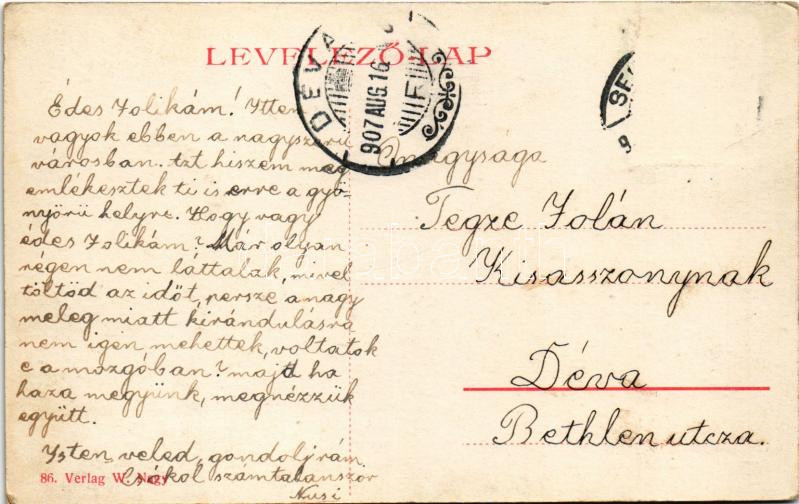 LEVELEZŐ-LAP
DÉVA
907 AUG. 16
F
SE
9
Édes Jolikám! Itten
vagyok ebben a nagyszerű
városban. Azt hiszem meg
emlékesztek ti is erre a gyö
nyörű helyre. Hogy vagy
édes Jolikám? Már olyan
régen nem láttalak, mivel
töltöd az időt, persze a nagy
meleg miatt kirándulásra
nem igen mehettek, voltatok
e a mozgóban? majd ha
haza megyünk, megnézzük
együtt.
Isten veled, gondolj rám.
Csókol számtalanszor
Nusi
Őnagysága
Tegze Jolán
Kisasszonynak
Déva
Bethlen utcza.
86. Verlag W. Nagy